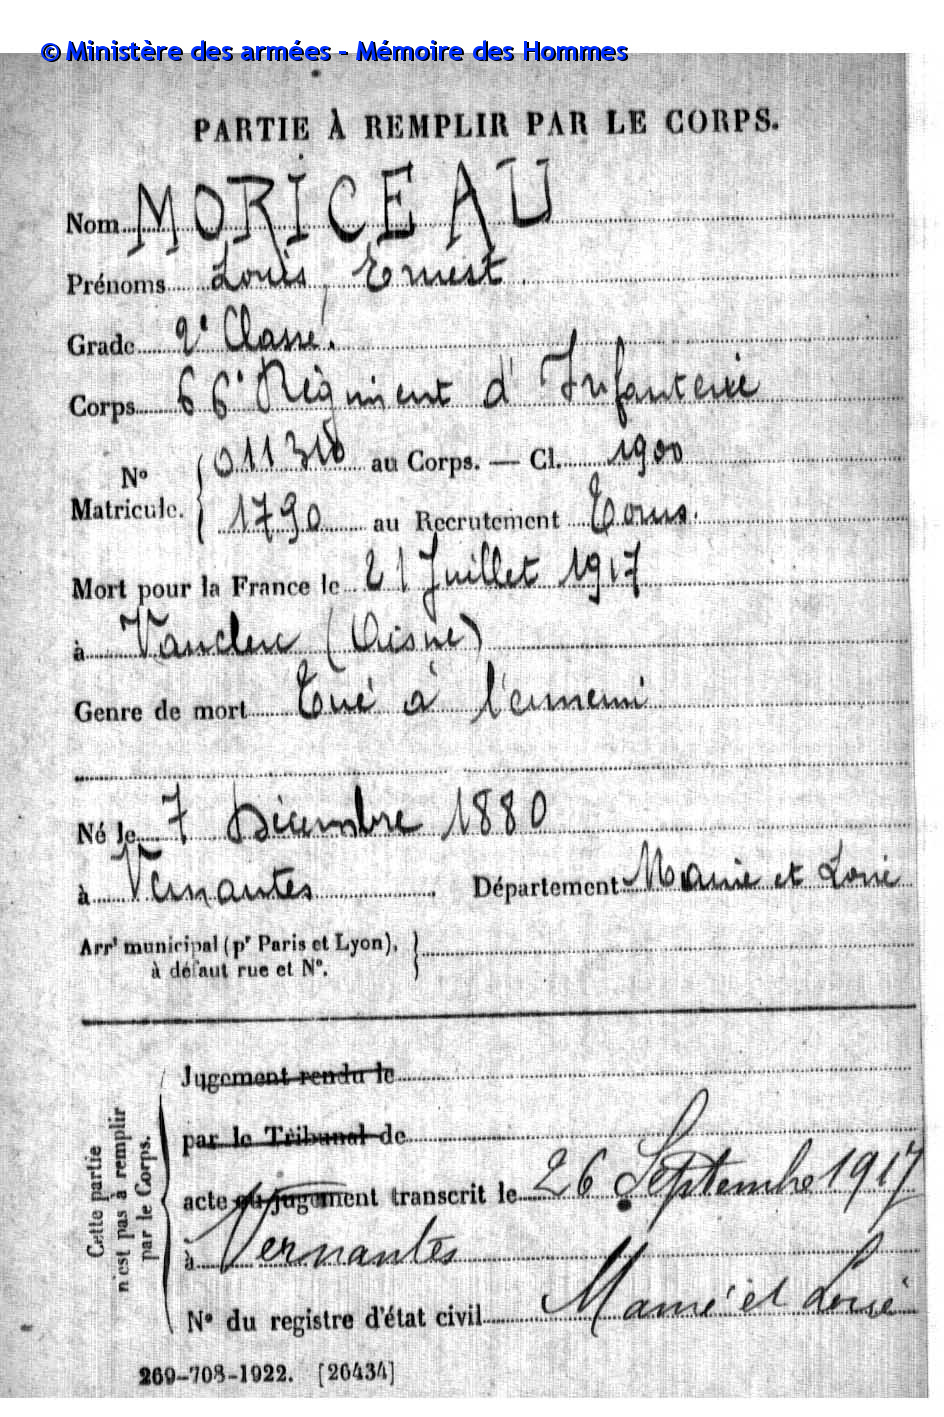 © Ministère des armées - Mémoire des Hommes
PARTIE À REMPLIR PAR LE CORPS.
Nom MORICEAU
Prénoms Louis, Ernest
Grade 2e Classe.
Corps 66e Régiment d'Infanterie
No 011310 au Corps. — Cl. 1900
Matricule. 1790 au Recrutement Tours.
Mort pour la France le 21 Juillet 1917
à Vauclerc (Aisne)
Genre de mort Tué à l'ennemi
Né le 7 Décembre 1880
à Vernantes Département Maine et Loire
Arrt municipal (pr Paris et Lyon),
à défaut rue et No.
Jugement rendu le
par le Tribunal de
acte ou jugement transcrit le 26 Septembre 1917
à Vernantes
No du registre d'état civil Maine et Loire
Cette partie
n'est pas à remplir
par le Corps.
269-708-1922. [26434]